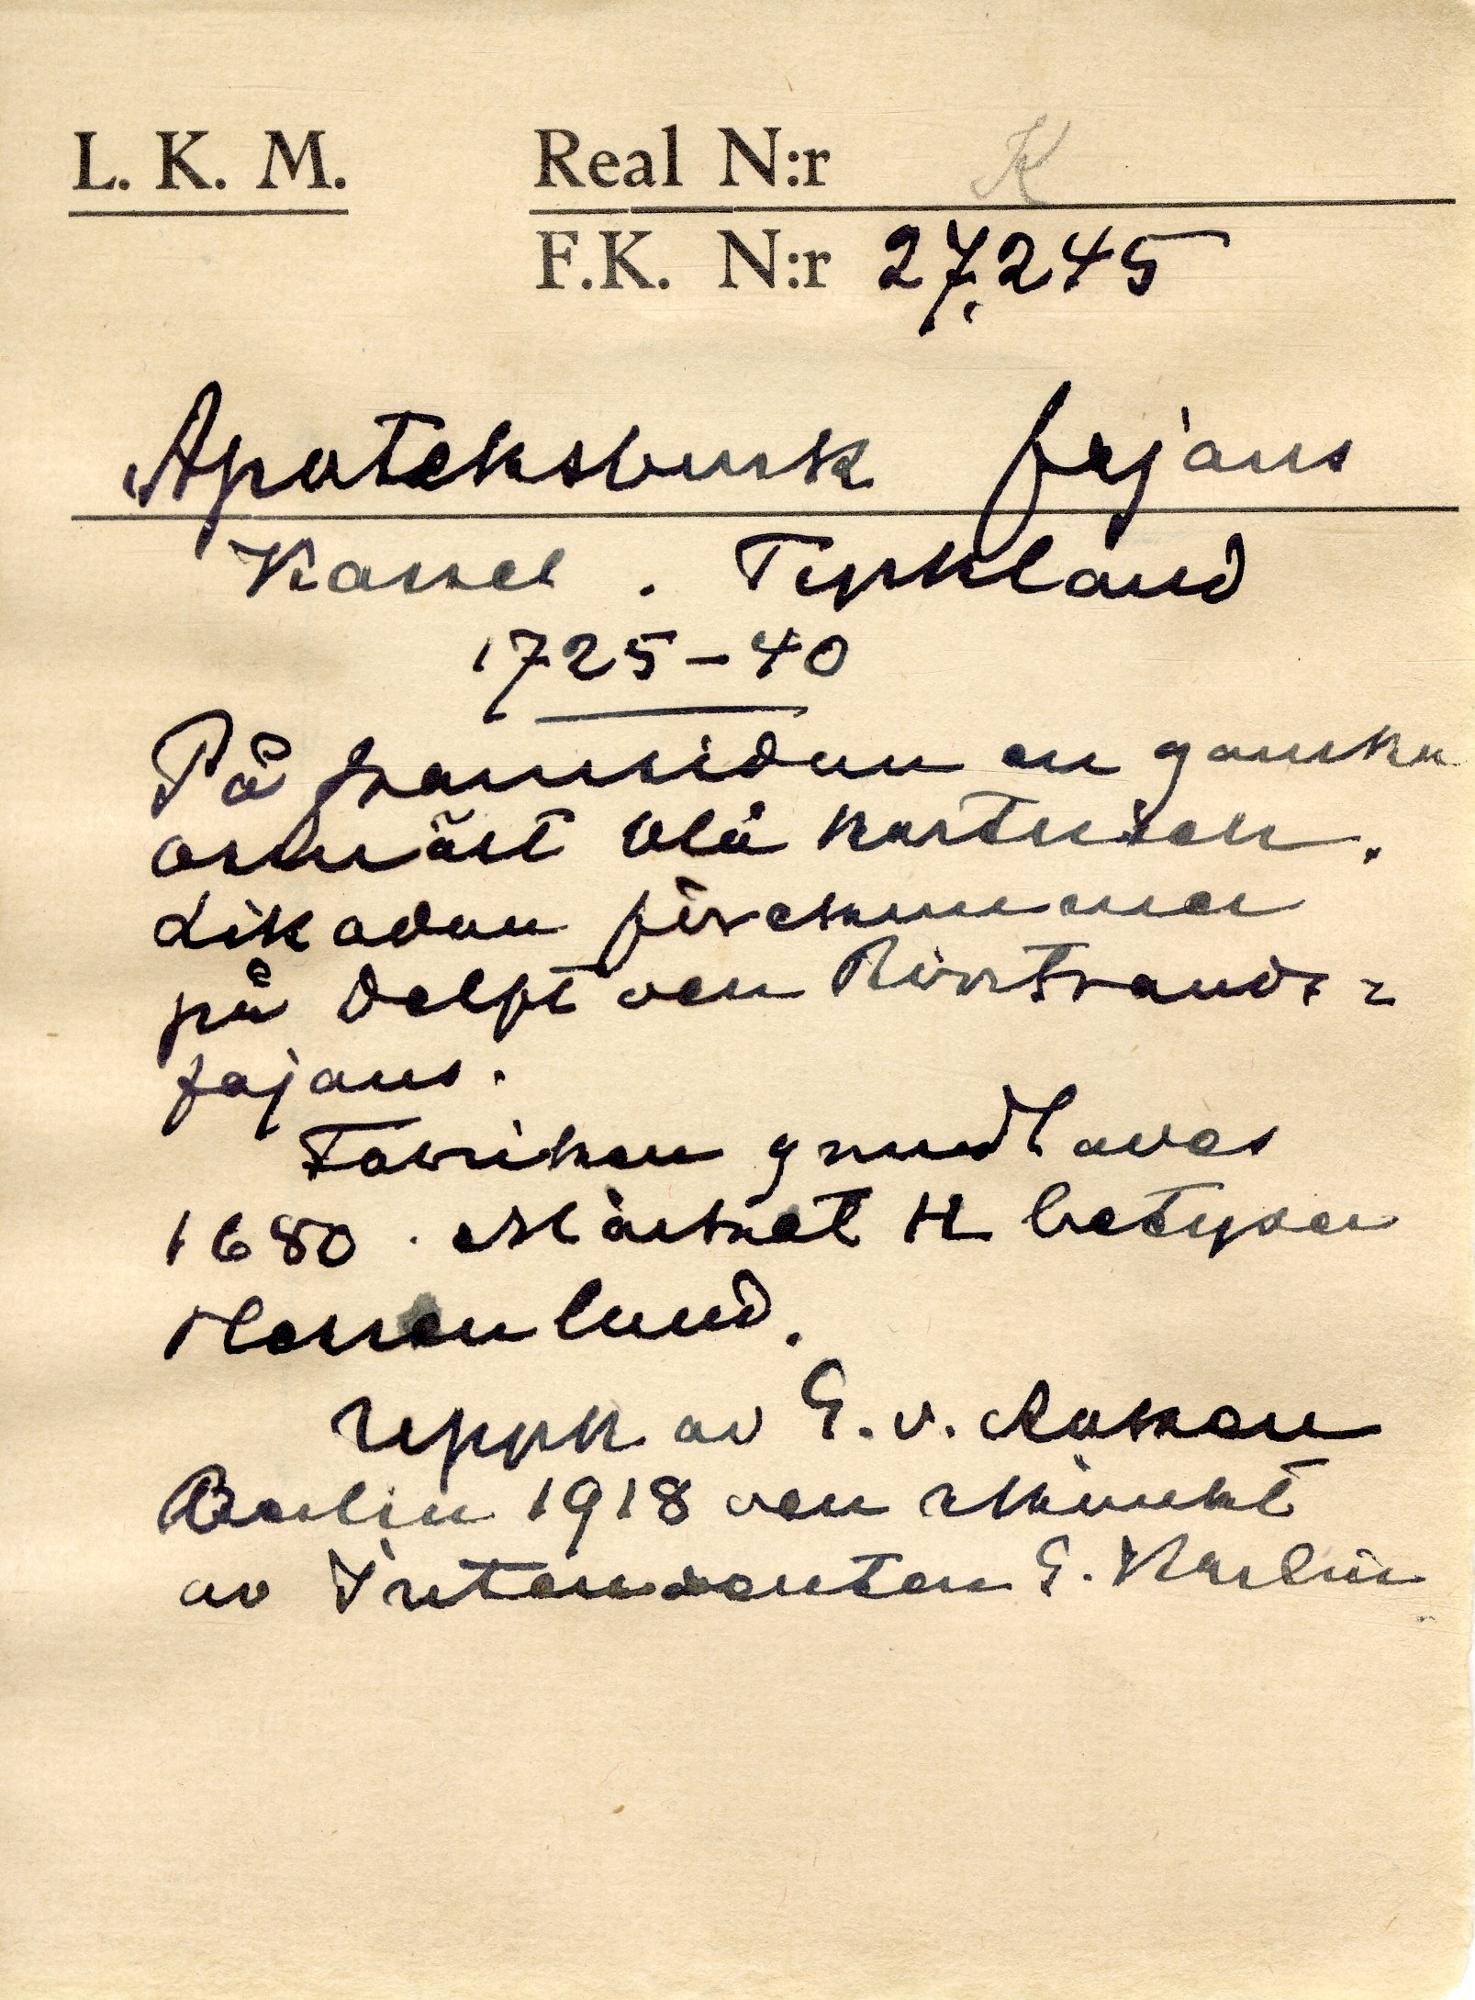 L. K. M. Real N:r K
F.K. N:r 27.245
Apoteksburk fajans
Kassel. Tyskland
1725-40
På framsidan en ganska
osmält blå kartusch.
Likadan förekommer
på Delft och Rörstrands=
fajans.
Fabriken grundlades
1680. Märket H betyder
Hessenland.
Uppk av G. v.
Berlin 1918 och skänkt
av Intendenten G. Karlin